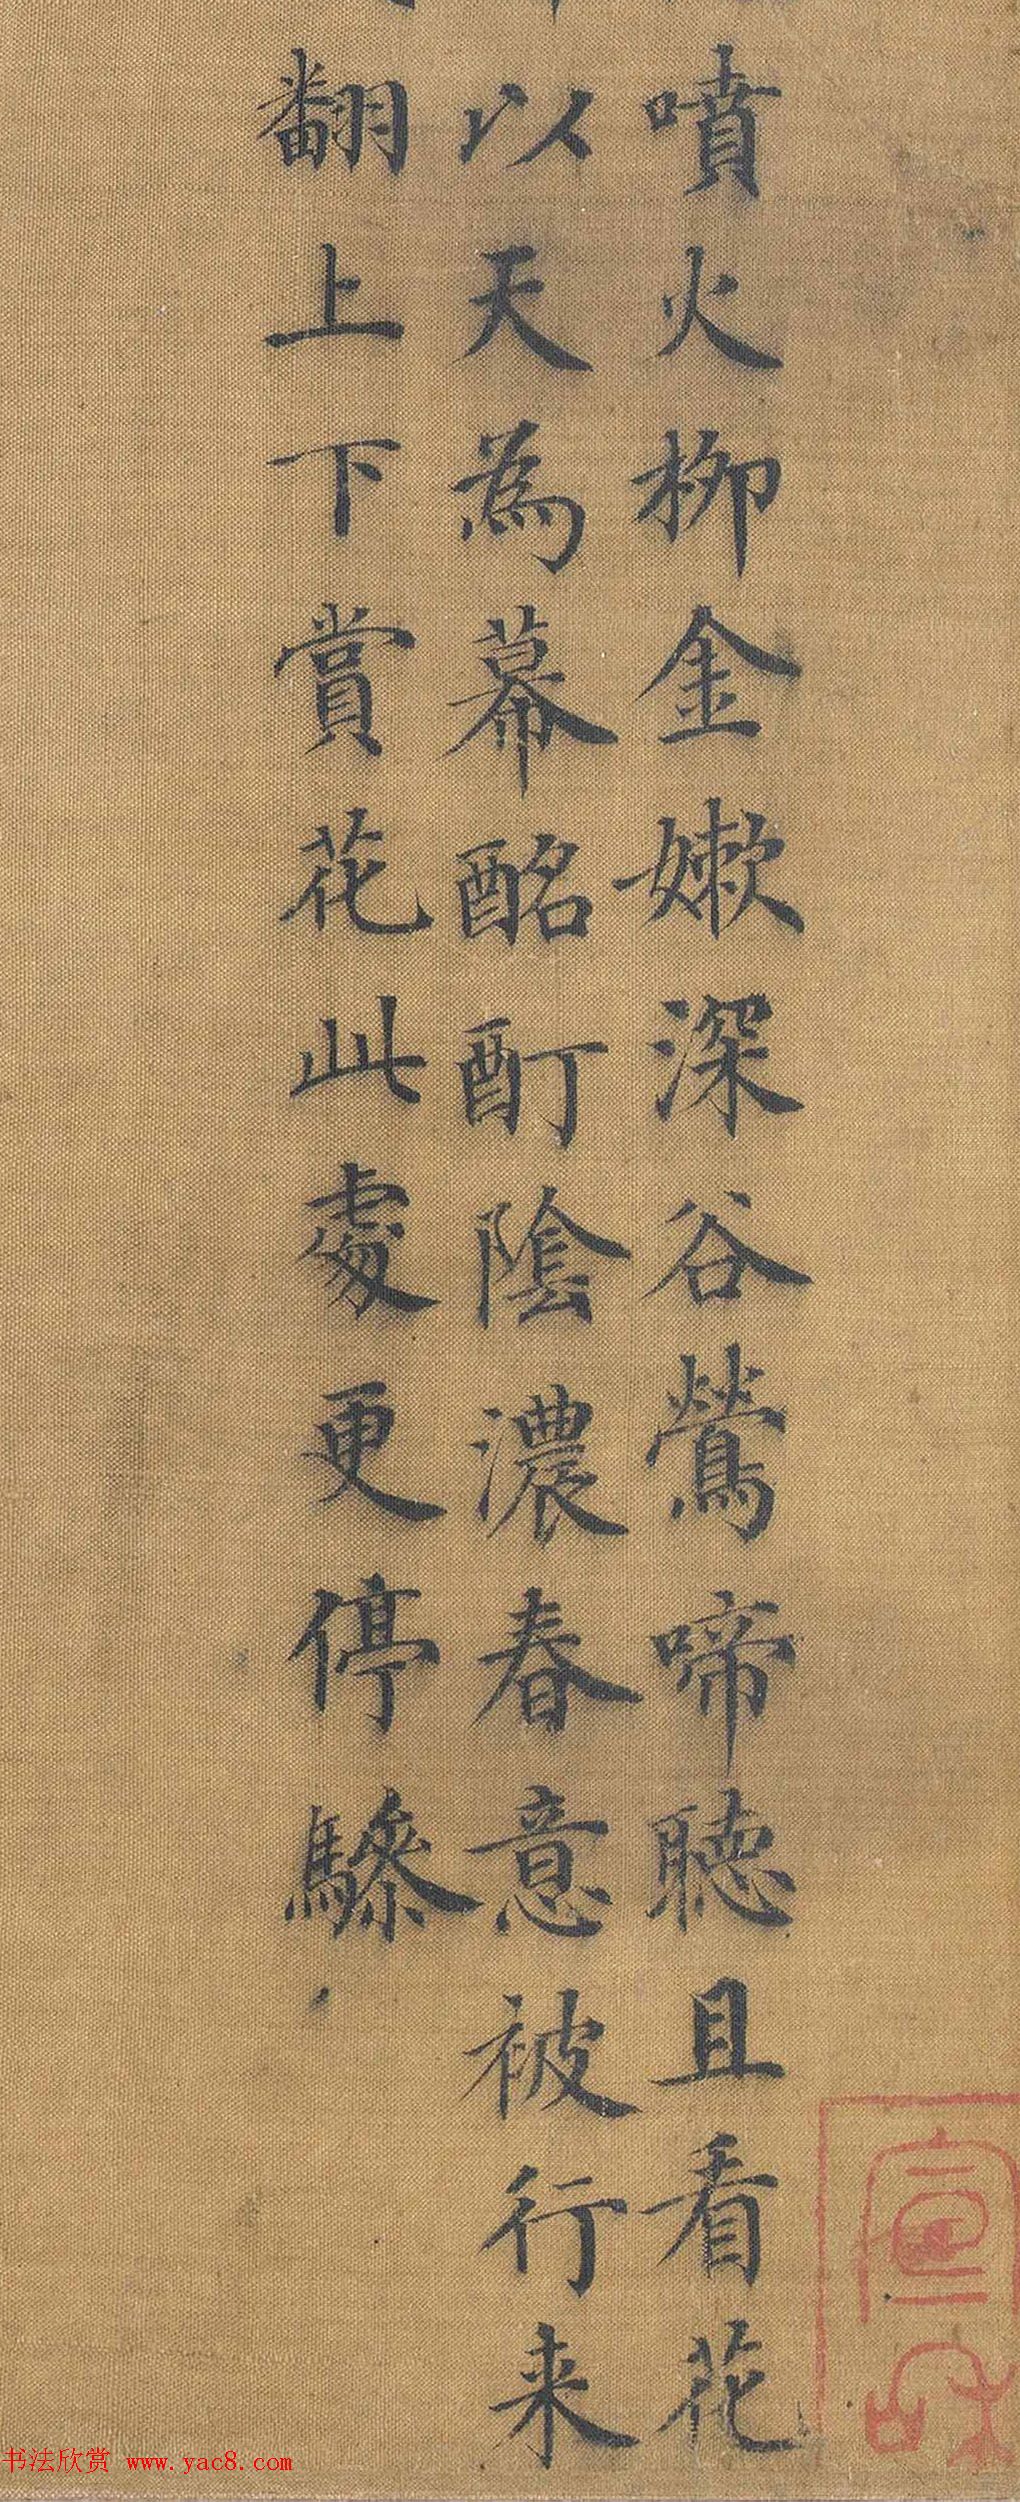 噴火桞金嫰深谷鶯啼聴且看花
以天為幕酩酊陰濃春意被行来
翻上下賞花此處更停驂
書法欣赏 www.yac8.com